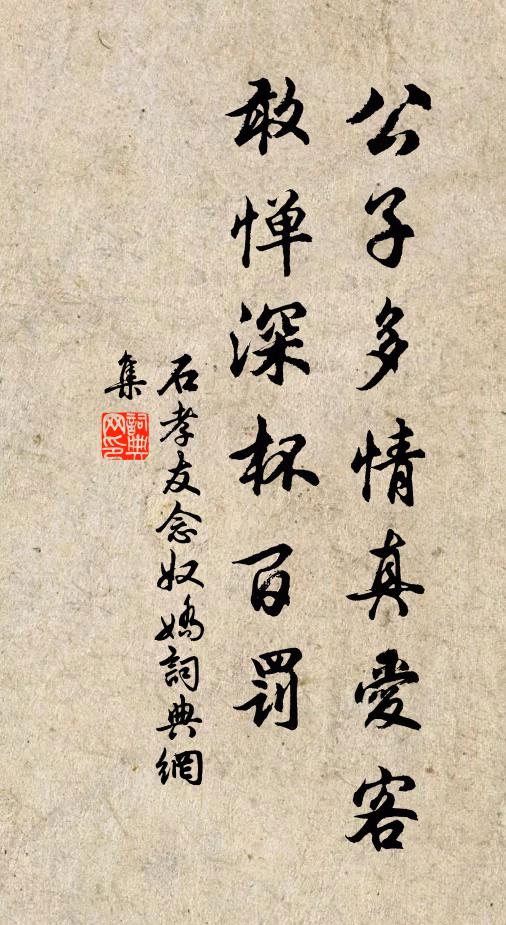 公子多情真愛客
敢惮深杯百罰
石孝友念奴嬌詞典網
集
詞典
网印